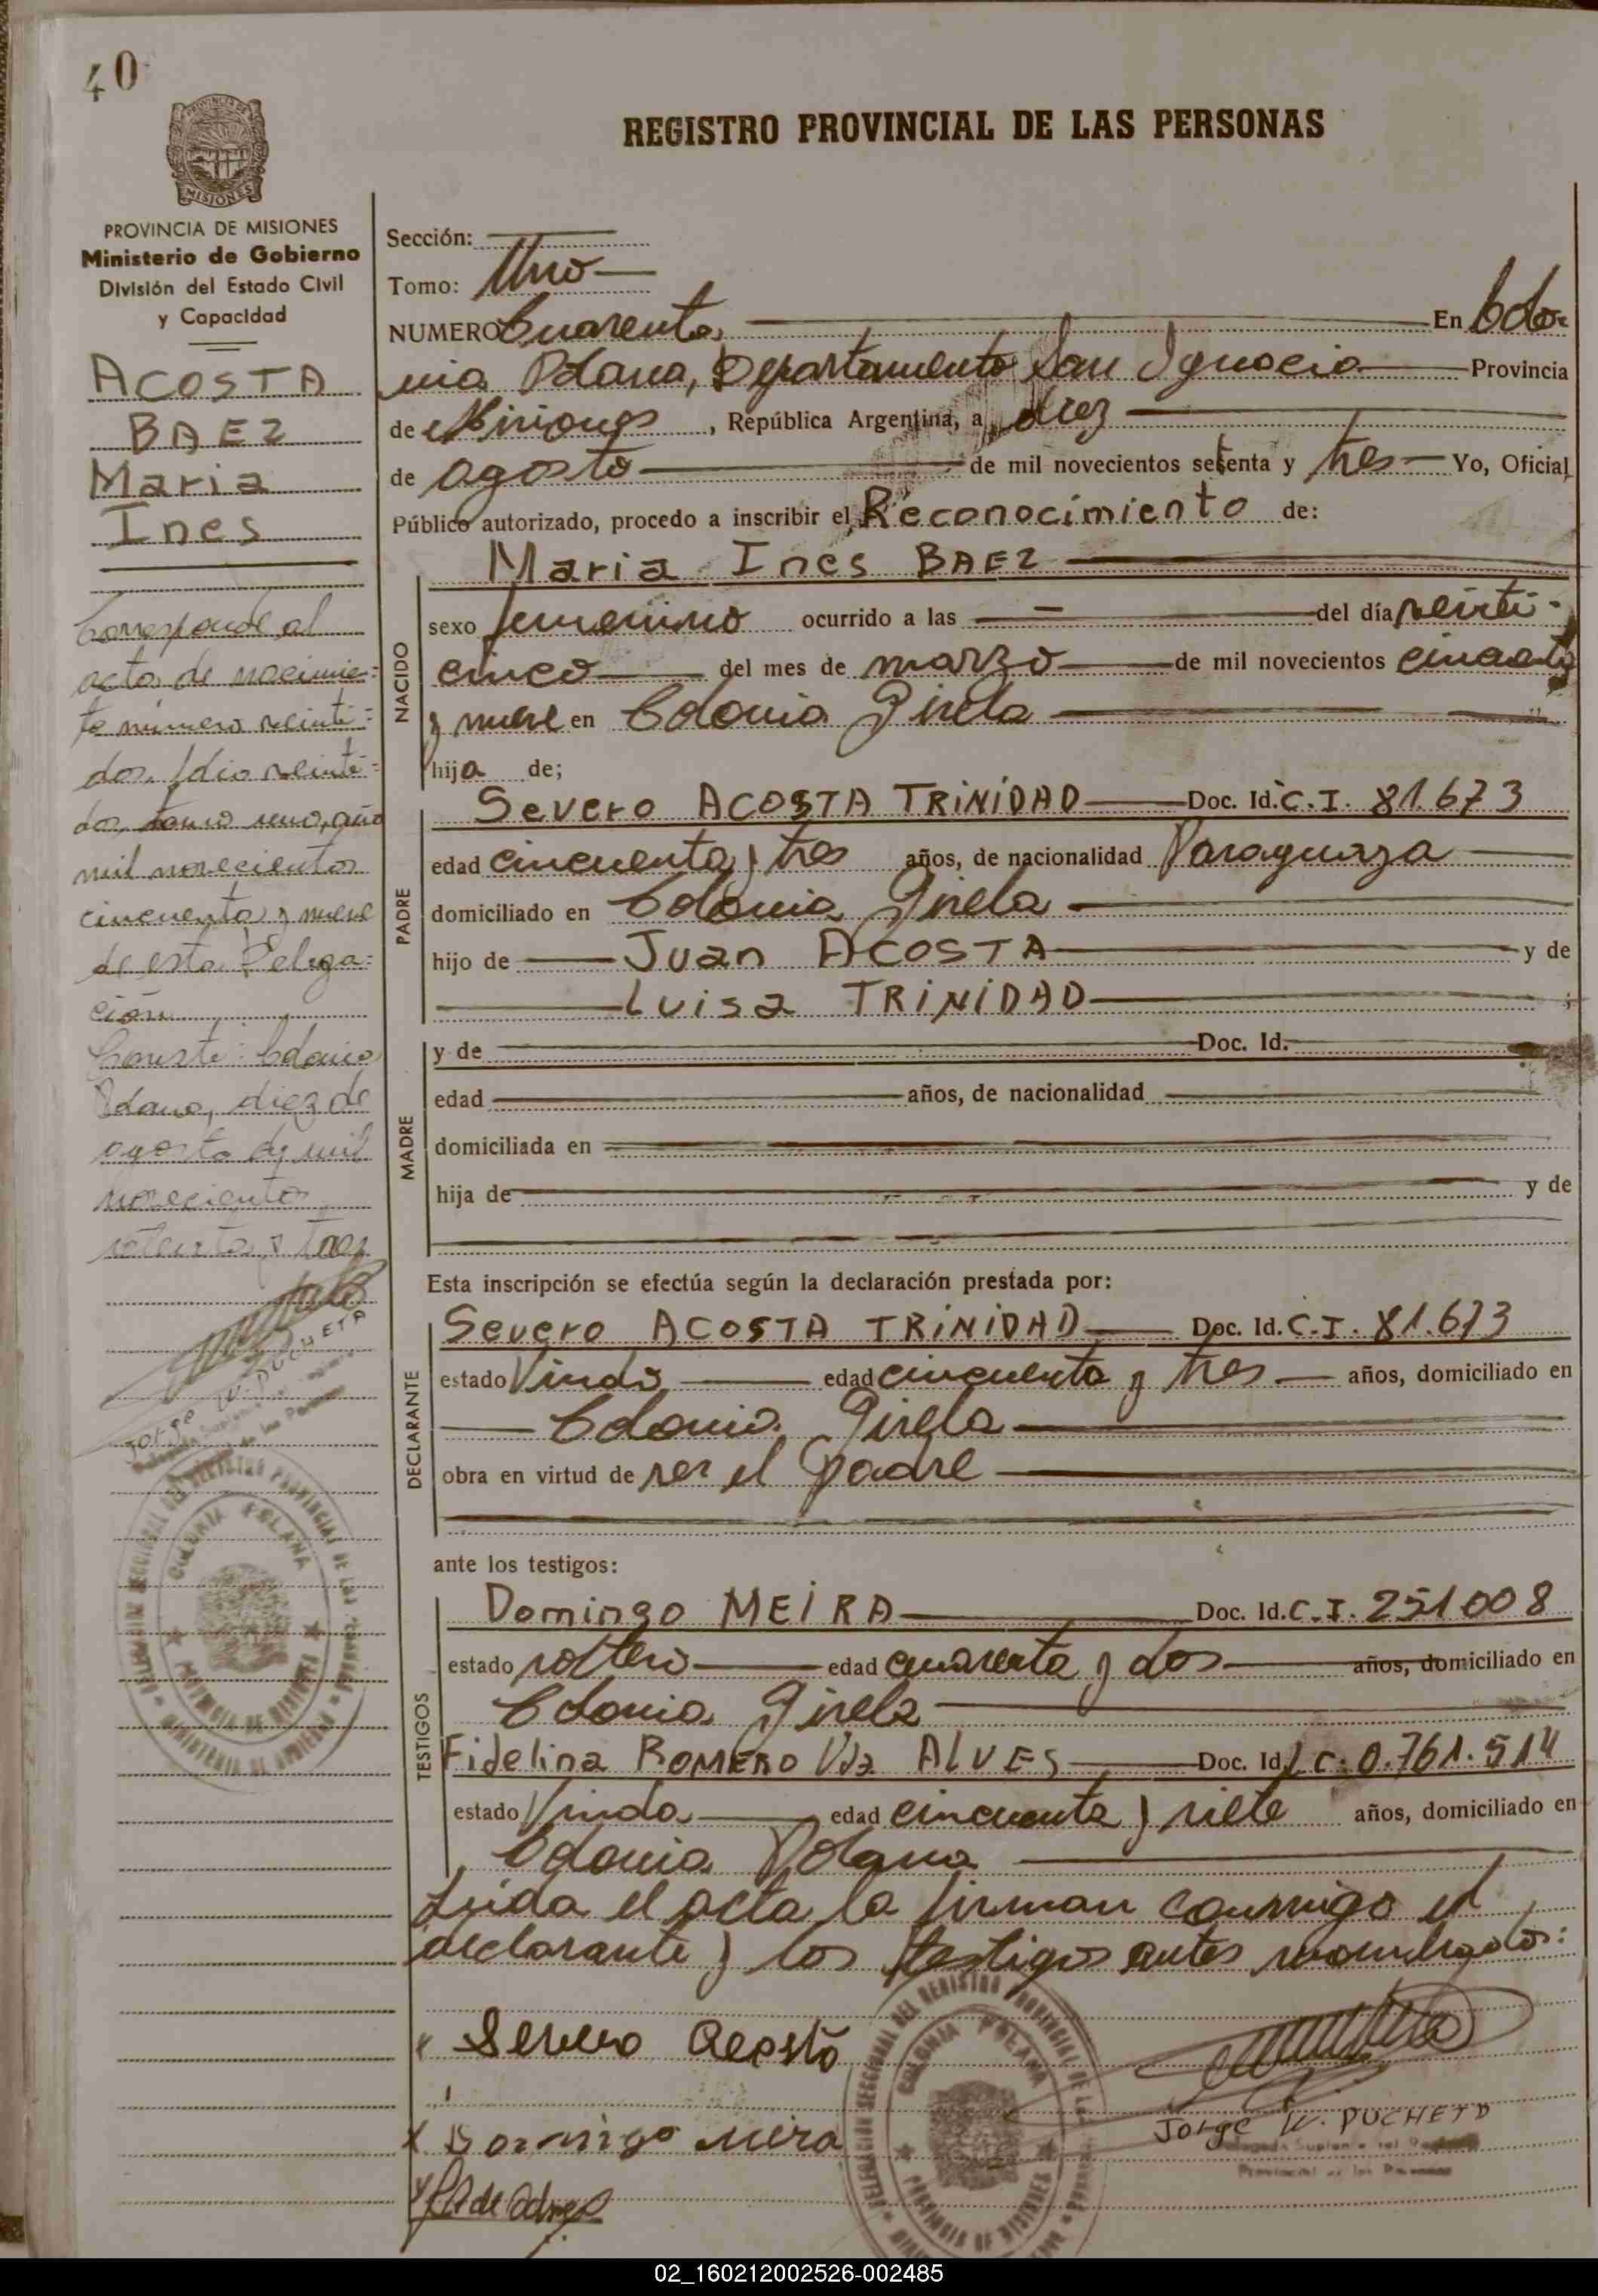 40
PROVINCIA DE
MISIONES
PROVINCIA DE MISIONES
Ministerio de Gobierno
División del Estado Civil
y Capacidad
ACOSTA
BAEZ
Maria
Ines
Corresponde al
acta de nacimien=
to número veinti=
dos, folio veinti=
dos, tomo uno, año
mil novecientos
cincuenta y nueve
de esta Delega=
ción
Conste: Colonia
Polana, diez de
agosto de mil
novecientos
setenta y tres
Jorge W. PUCHETA
COLONIA POLANA
PROVINCIA DE MISIONES
REGISTRO PROVINCIAL DE LAS PERSONAS
Sección:
Tomo: Uno
NUMERO Cuarenta, En Colo=
nia Polana, Departamento San Ignacio Provincia
de Misiones , República Argentina, a diez
de agosto de mil novecientos setenta y tres Yo, Oficial
Público autorizado, procedo a inscribir el Reconocimiento de:
Maria Ines BAEZ
NACIDO
sexo femenino ocurrido a las — del día veinti-
cinco del mes de marzo de mil novecientos cincuenta
y nueve en Colonia Gisela
hija de;
PADRE
Severo ACOSTA TRINIDAD Doc. Id. C.I. 81.673
edad cincuenta y tres años, de nacionalidad Paraguaya
domiciliado en Colonia Gisela
hijo de Juan ACOSTA y de
Luisa TRINIDAD ;
MADRE
y de Doc. Id.
edad años, de nacionalidad
domiciliada en
hija de y de
Esta inscripción se efectúa según la declaración prestada por:
DECLARANTE
Severo ACOSTA TRINIDAD Doc. Id. C.I. 81.673
estado Viudo edad cincuenta y tres años, domiciliado en
Colonia Gisela
obra en virtud de ser el padre
ante los testigos:
TESTIGOS
Domingo MEIRA Doc. Id. C.I. 251008
estado soltero edad cuarenta y dos años, domiciliado en
Colonia Gisela
Fidelina ROMERO Vda ALVES Doc. Id. L.C. 0.761.514
estado Viuda edad cincuenta y siete años, domiciliado en
Colonia Polana
Leida el acta la firman conmigo el
declarante y los testigos antes nombrados:
Severo Acosta
Domingo Meira
Jorge W. PUCHETA
Delegado Suplente del Registro
Provincial de las Personas
COLONIA POLANA
PROVINCIA DE MISIONES
02_160212002526-002485